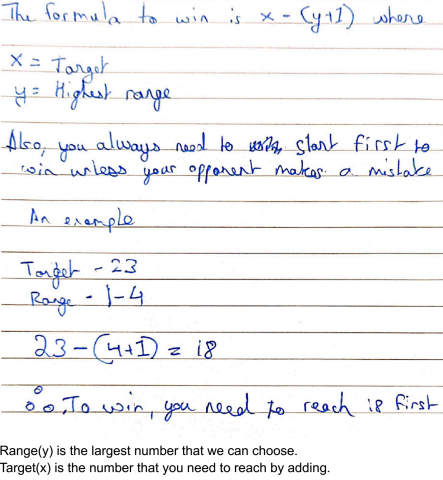 The formula to win is x - (y+1) where
x = Target
y = Highest range
Also, you always need to start first to
win unless your opponent makes a mistake
An example
Target - 23
Range - 1-4
23 - (4+1) = 18
∴, To win, you need to reach 18 first
Range(y) is the largest number that we can choose.
Target(x) is the number that you need to reach by adding.